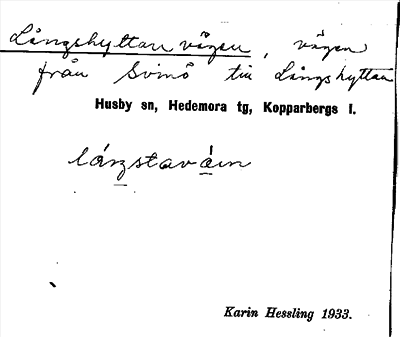 Långshyttan vägen, vägen
från Svinö till Långshyttan
Husby sn, Hedemora tg, Kopparbergs l.
Karin Hessling 1933.